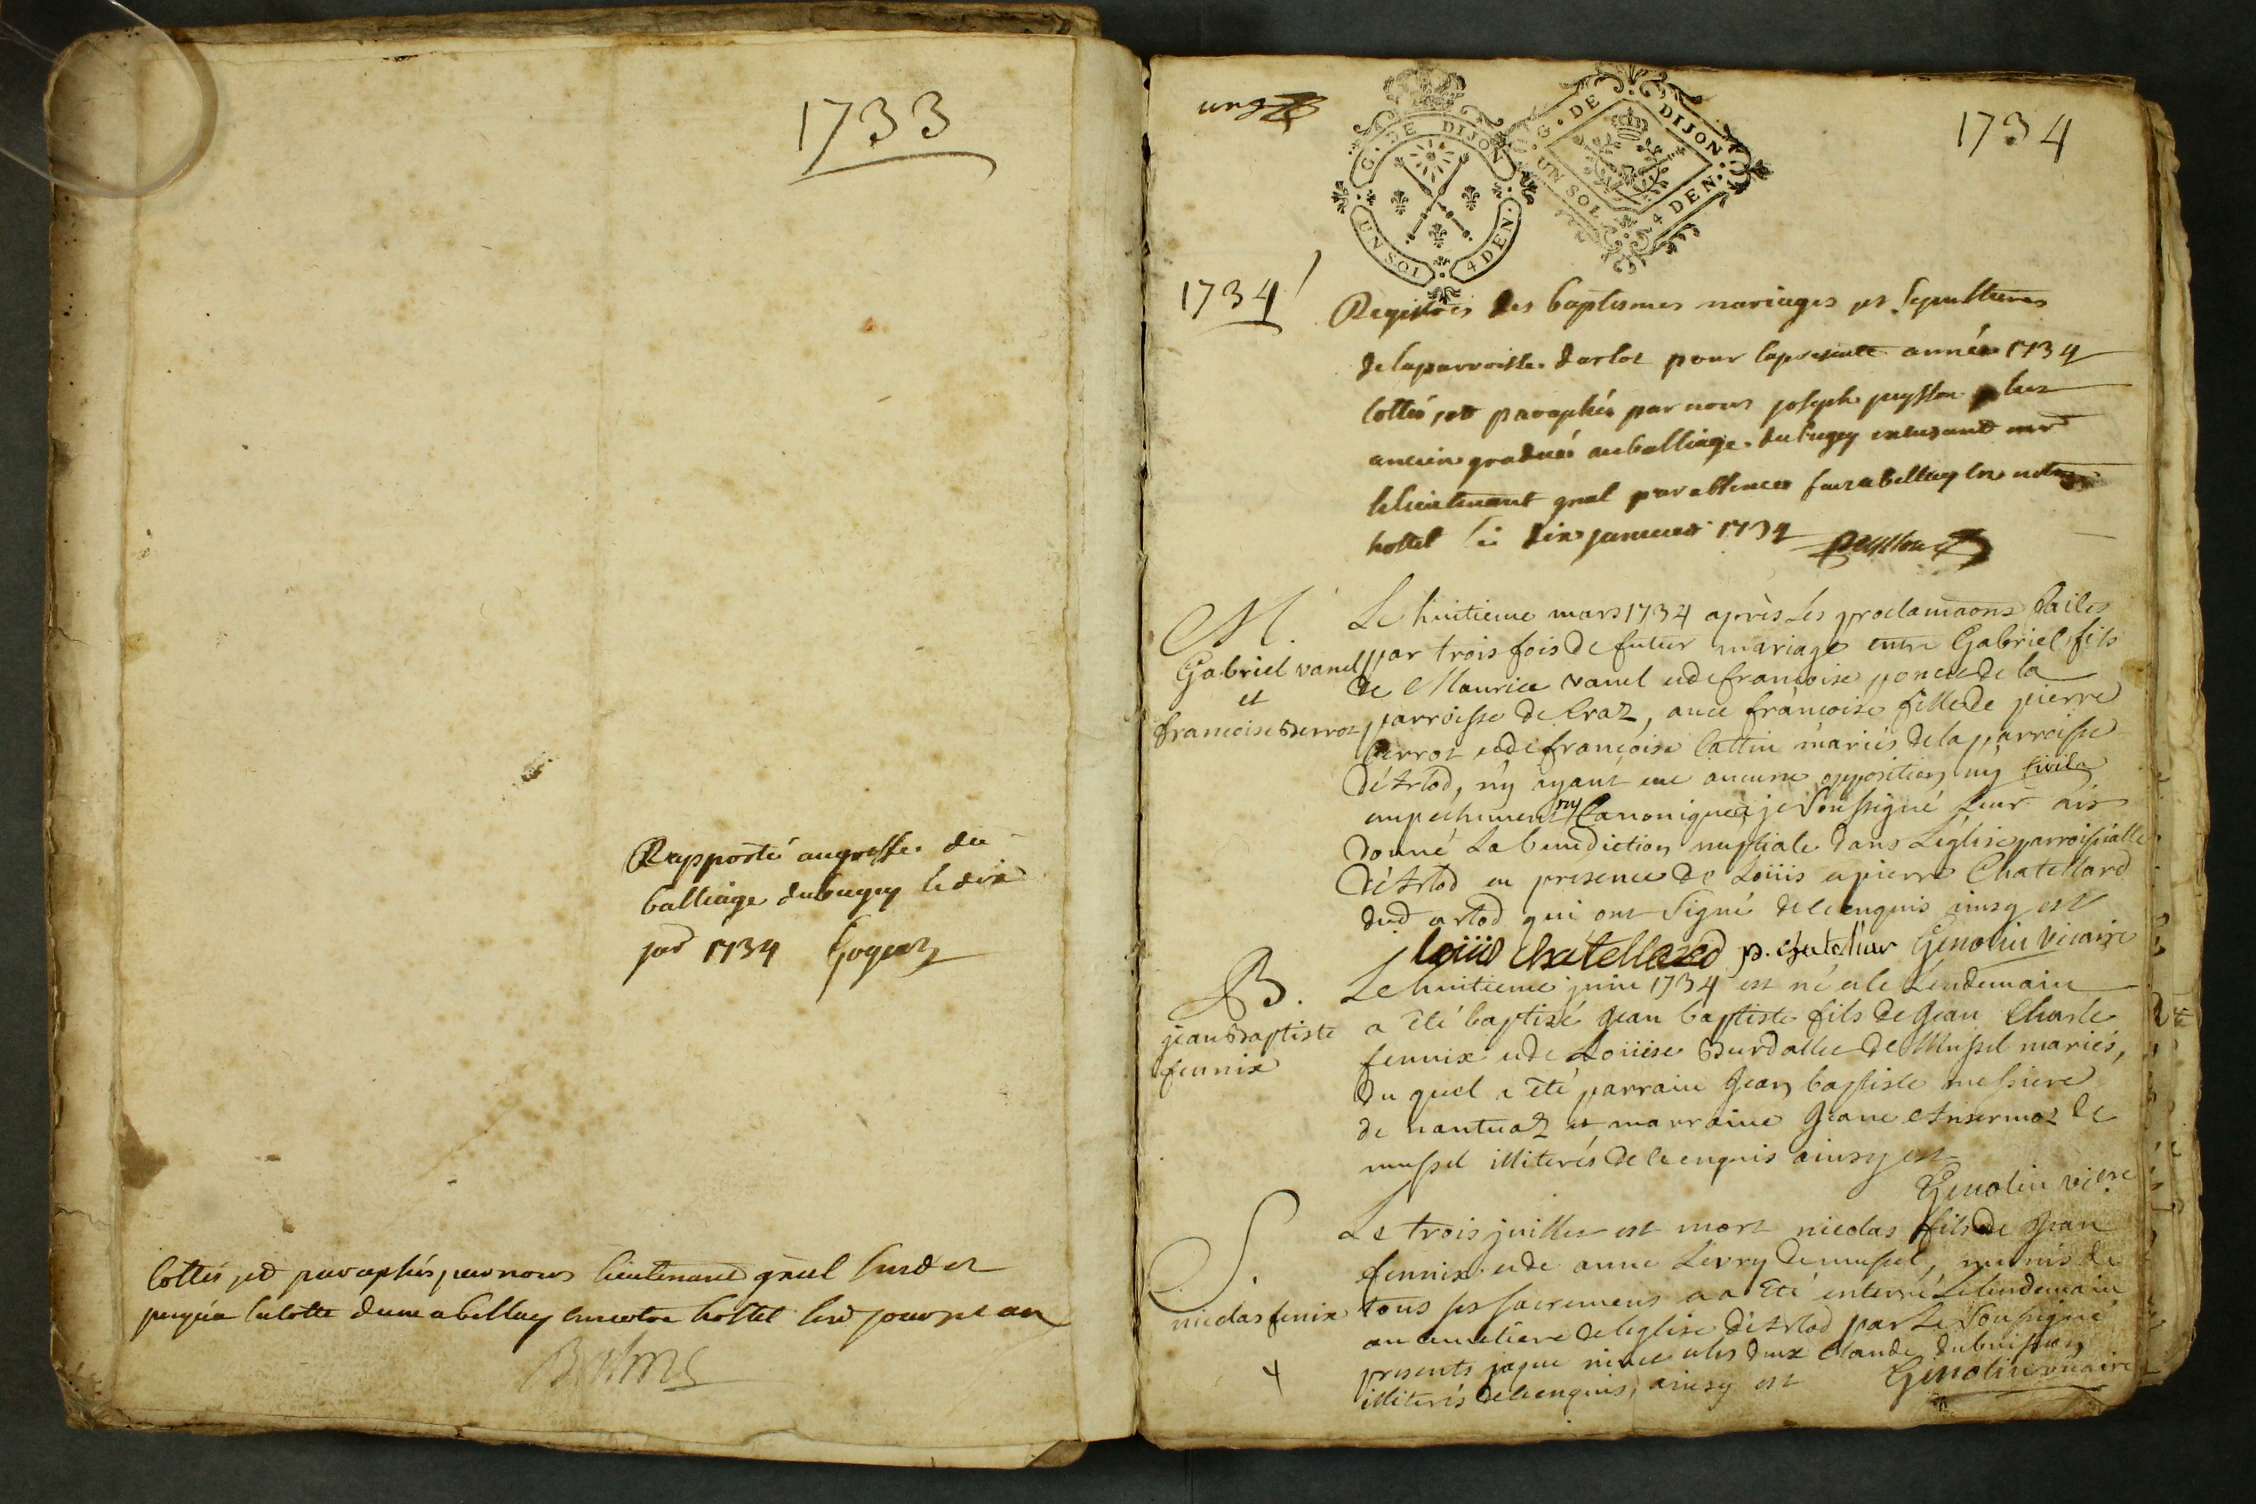 1733
Rapporté au greffe du
balliage du bugey le dix
jer 1734
Cottés et paraphés par nous lieutenant gnal susd et
hostel
1734
G. DE DIJON
UN SOL 4 DEN.
G. DE DIJON.
UN SOL 4 DEN.
1734
Registres des baptismes mariages et sepultures
de la parroisse darlot pour la presente année 1734
cottés et paraphés par nous joseph peysson plus
ancien gradué au balliage du bugey
le lieutenant gnal par absence fait a belley en notre
hostel ce dix janvier 1734 peysson
M.
Gabriel vanel
et
francoise Berrot
Le huitieme mars 1734 après les proclamaons faites
par trois fois de futur mariage entre Gabriel fils
de Maurice vanel et de francoise poncet de la
parroisse de Craz, avec francoise fille de pierre
Berrot et de francoise Cattin mariés de la parroisse
d'Arlod, n'y ayant eue aucune opposition ny civile
empechement ny Canonique je soussigné leur ais
donné la benediction nuptiale dans L'eglise parroissialle
d'Arlod en presence de Loüis et pierre Chatellard
dud arlod qui ont signé de ce enquis ainsy est
Loüis Chatellard p. chatellar Genolin vicaire
B.
jean Baptiste
fennix
Le huitieme juin 1734 est né et le Lendemain
a été baptizé jean baptiste fils de jean Charle
fennix et de Loüise Burdallet de Mussel mariés,
du quel a été parrain jean baptiste messiere
de nantuaz et marraine jeane Ansermoz de
mussel illiterés de ce enquis ainsy est
Genolin vicre
S.
nicolas fenix
Le trois juillet est mort nicolas fils de jean
fennix et de anne Levry de mussel, munis de
tous ses sacremens et a été enterré le lendemain
au cimetiere de leglise d'Arlod par le soussigné
presents jaque et claude dubuisson
illiterés de ce enquis, ainsy est Genolin vicaire